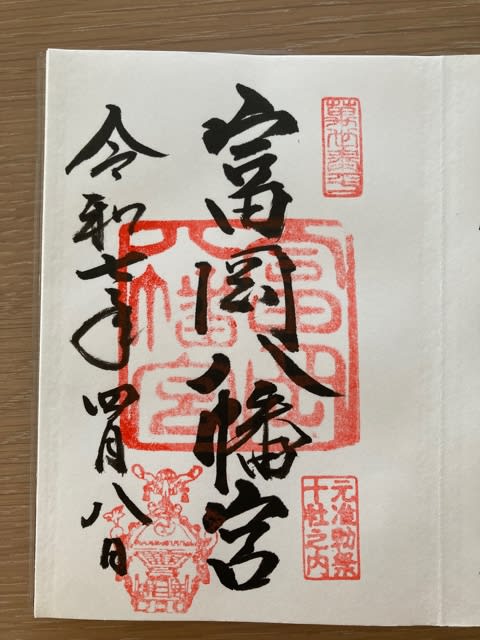 富岡八幡宮
富岡
八幡宮
元准勅祭
十社之内
令和七年四月八日